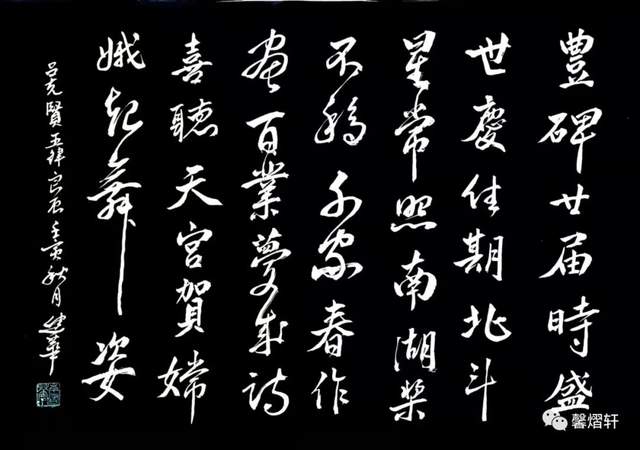 豐碑廿届時盛
世慶佳期北斗
星常照南湖槳
不移千家春作
畫百業夢成詩
喜聽天宮賀嫦
娥起舞姿
吕克賢五律良辰壬寅秋月建華
馨熠轩